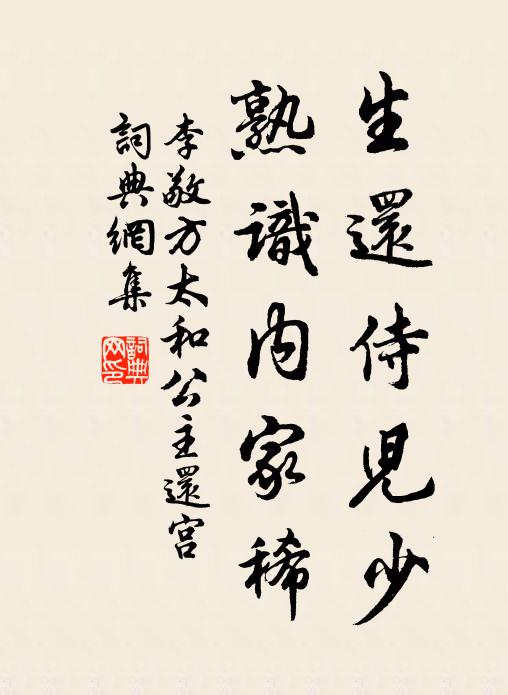 生還侍児少
熟識内家稀
李敬方太和公主還宮
詞典網集
詞典
网印